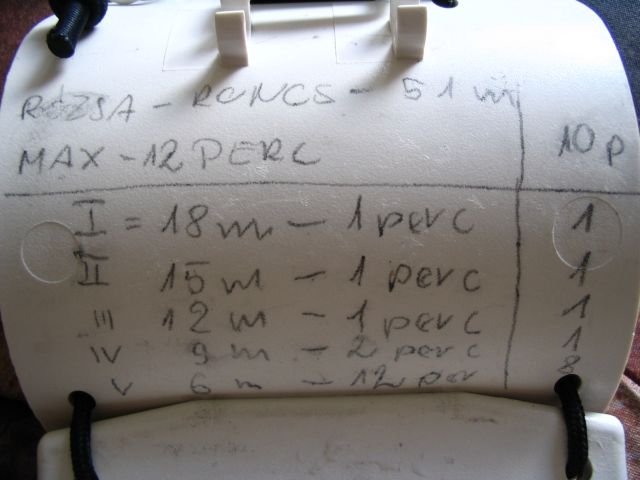 RÓZSA - RONCS - 51 m
MAX - 12 PERC 10 p
I = 18 m - 1 perc 1
II 15 m - 1 perc 1
III 12 m - 1 perc 1
IV 9 m - 2 perc 1
V 6 m - 12 per 8